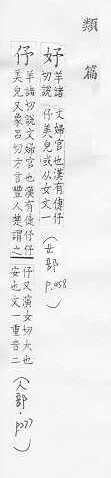 類篇
妤
羊諸
切說
文婦官也漢有倢伃
伃美皃或从女文一
(女部 p.458)
伃
羊諸切說文婦官也漢有倢伃伃
美皃又象呂切方言豐人楚謂之
伃又演女切大也
安也文一重音二
(人部. p277)